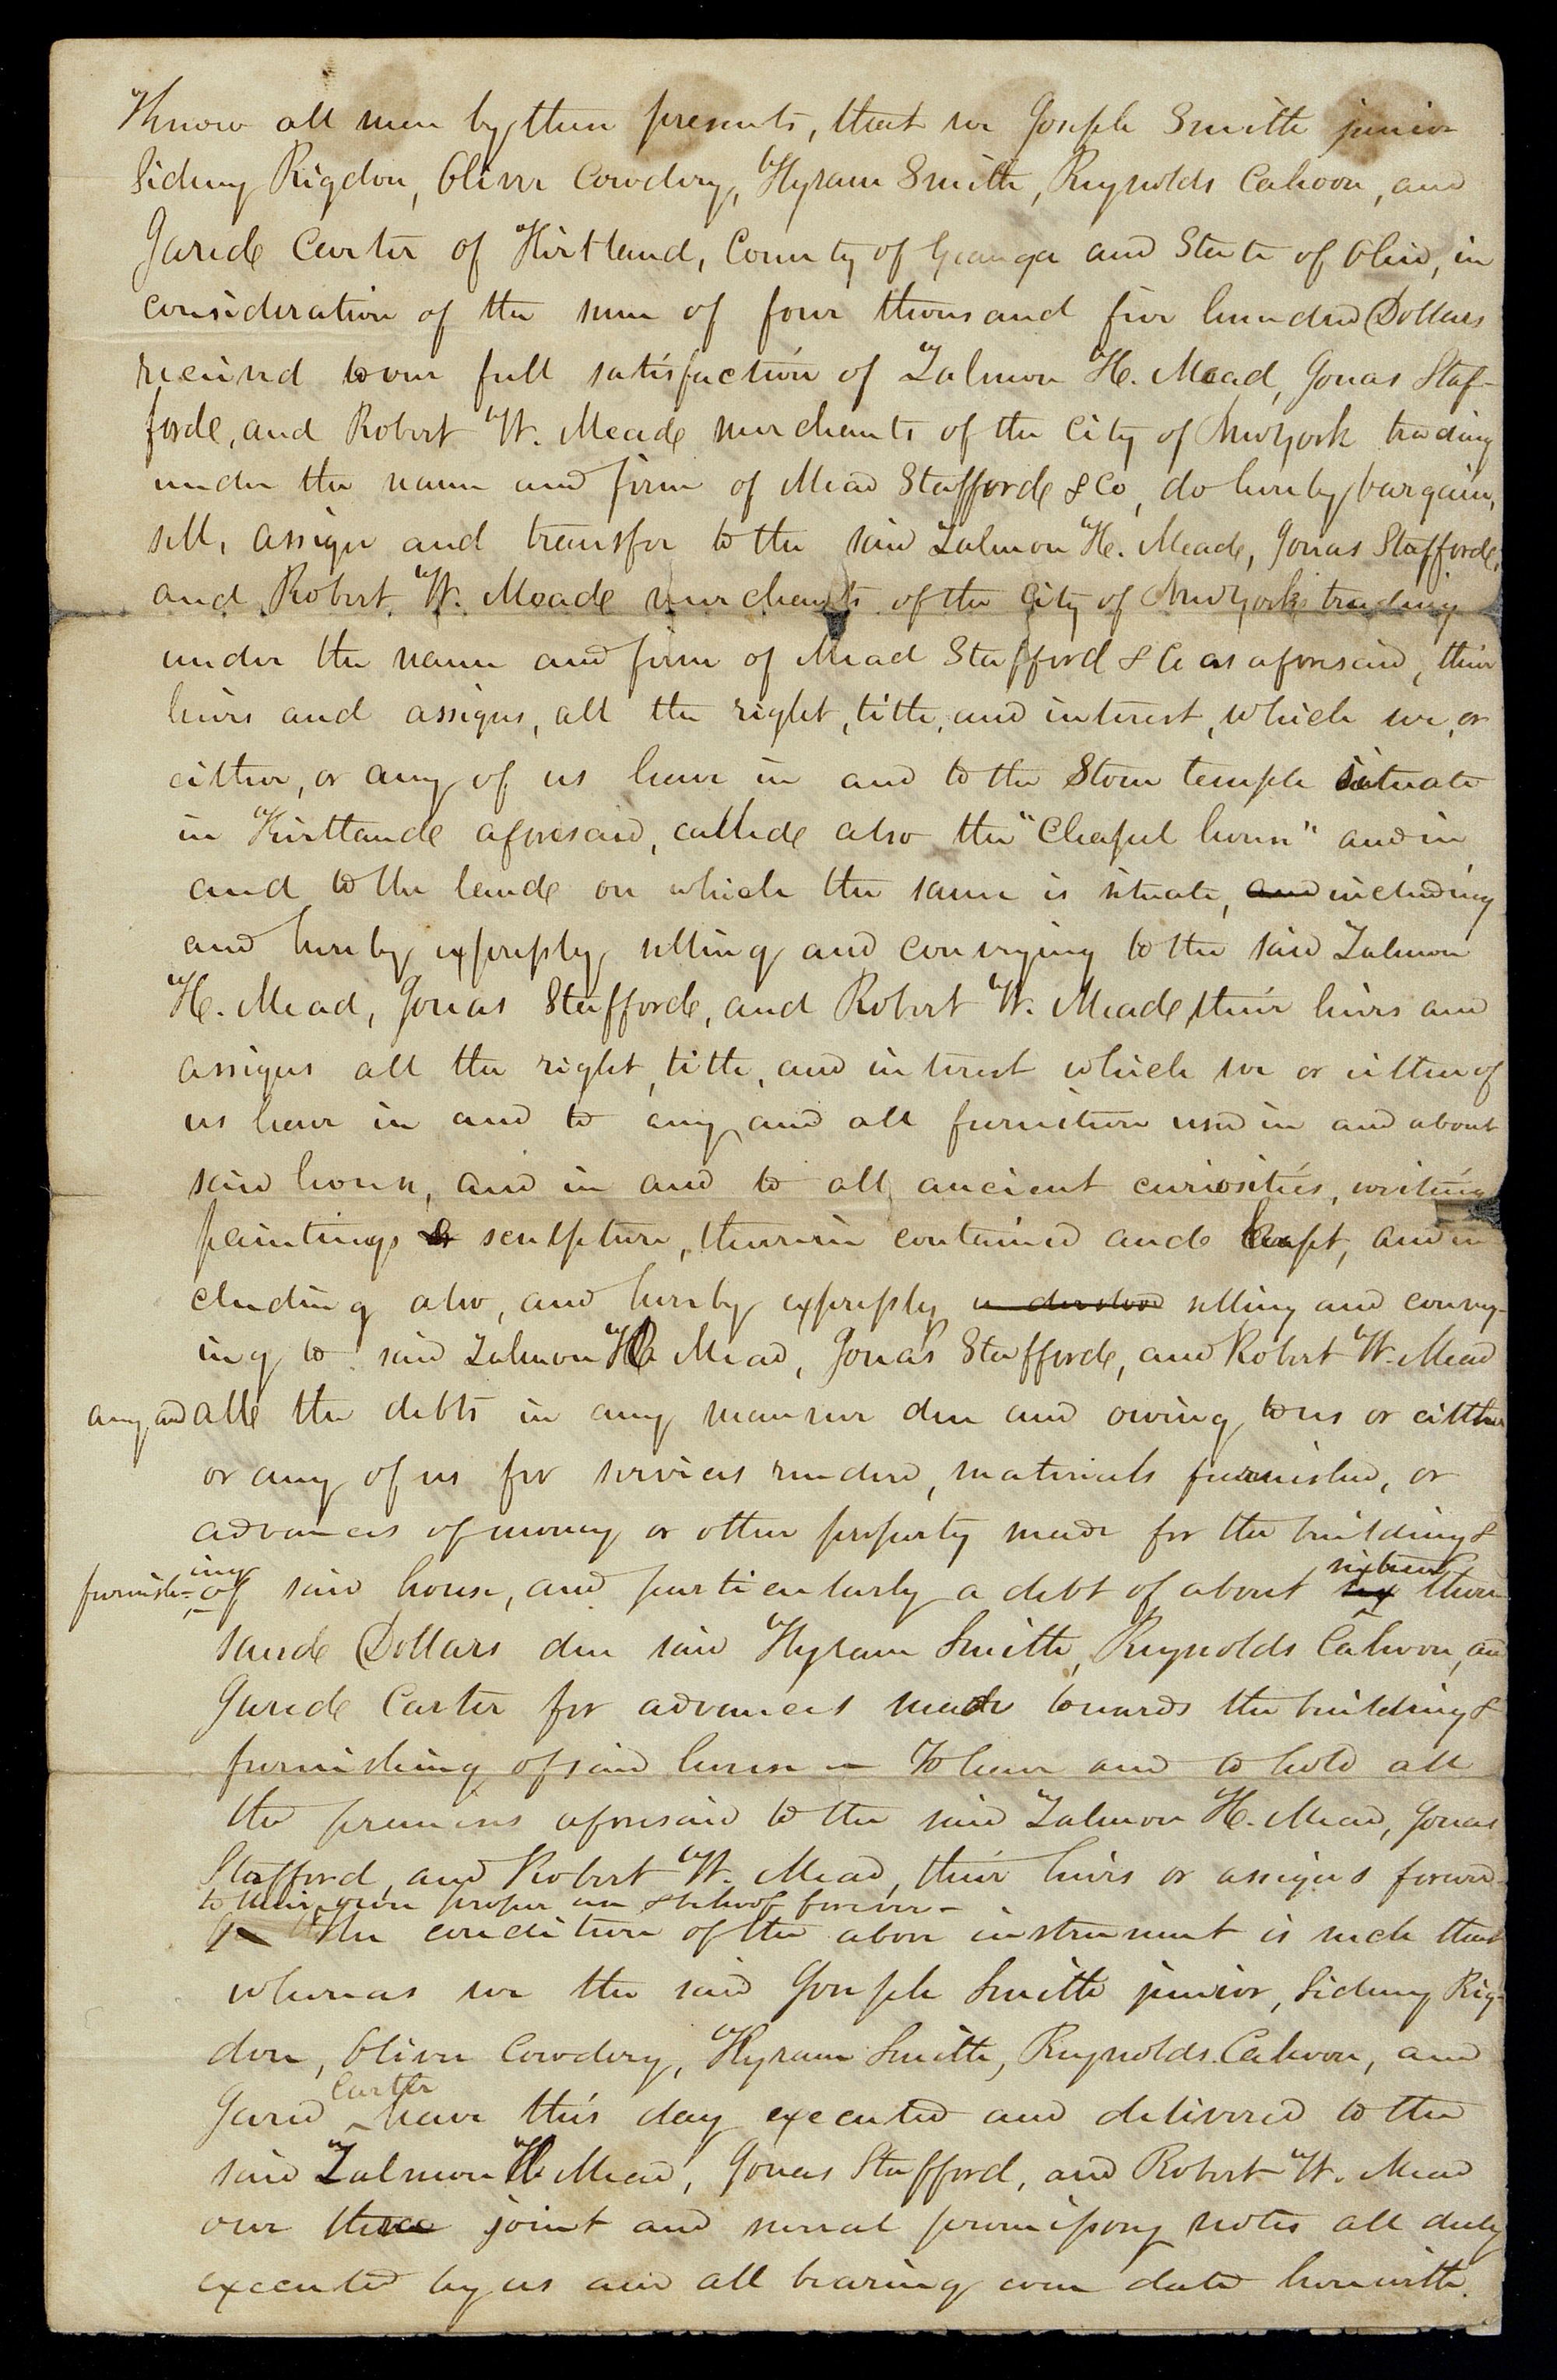 Know all men by these presents, that we Joseph Smith junior
Sidney Rigdon, Oliver Cowdery, Hyram Smith, Reynolds Cahoon, and
Jared Carter of Kirtland, County of Geauga and State of Ohio, in
consideration of the sum of four thousand five hundred Dollars
received to our full satisfaction of Zalmon H. Mead, Jonas Staf-
ford, and Robert W. Mead merchants of the City of New York trading
under the name and firm of Mead Stafford & Co, do hereby bargain,
sell, assign and transfer to the said Zalmon H. Mead, Jonas Stafford,
and Robert W. Mead merchants of the City of New York trading
under the name and firm of Mead Stafford & Co as aforesaid, their
heirs and assigns, all the right, title, and interest, which we, or
either, or any of us have in and to the Stone temple situate
in Kirtland aforesaid, called also the "Chapel house" and in
and to the land on which the same is situate, and including
and hereby expressly selling and conveying to the said Zalmon
H. Mead, Jonas Stafford, and Robert W. Mead, their heirs and
assigns all the right, title, and interest which we or either of
us have in and to any and all furniture used in and about
said house, and in and to all ancient curiosities, writings
paintings & sculpture, therein contained and kept, and in
cluding also, and hereby expressly understood selling and convey-
ing to said Zalmon H. Mead, Jonas Stafford, and Robert W. Mead
any and all the debts in any manner due and owing to us or either
or any of us for services rendered, materials furnished, or
advances of money or other property made for the building &
furnish-ing of said house, and particularly a debt of about sixteen thou
sand Dollars due said Hyram Smith, Reynolds Cahoon, and
Jared Carter for advances made towards the building &
furnishing of said house – To have and to hold all
the premises aforesaid to the said Zalmon H. Mead, Jonas
Stafford, and Robert W. Mead, their heirs or assigns forever
to their own proper use & behoof forever –
The condition of the above instrument is such that
whereas we the said Joseph Smith junior, Sidney Rig-
don, Oliver Cowdery, Hyram Smith, Reynolds Cahoon, and
Jared Carter have this day executed and delivered to the
said Zalmon H. Mead, Jonas Stafford, and Robert W. Mead
our three joint and several promissory notes all duly
executed by us and all bearing even date herewith.